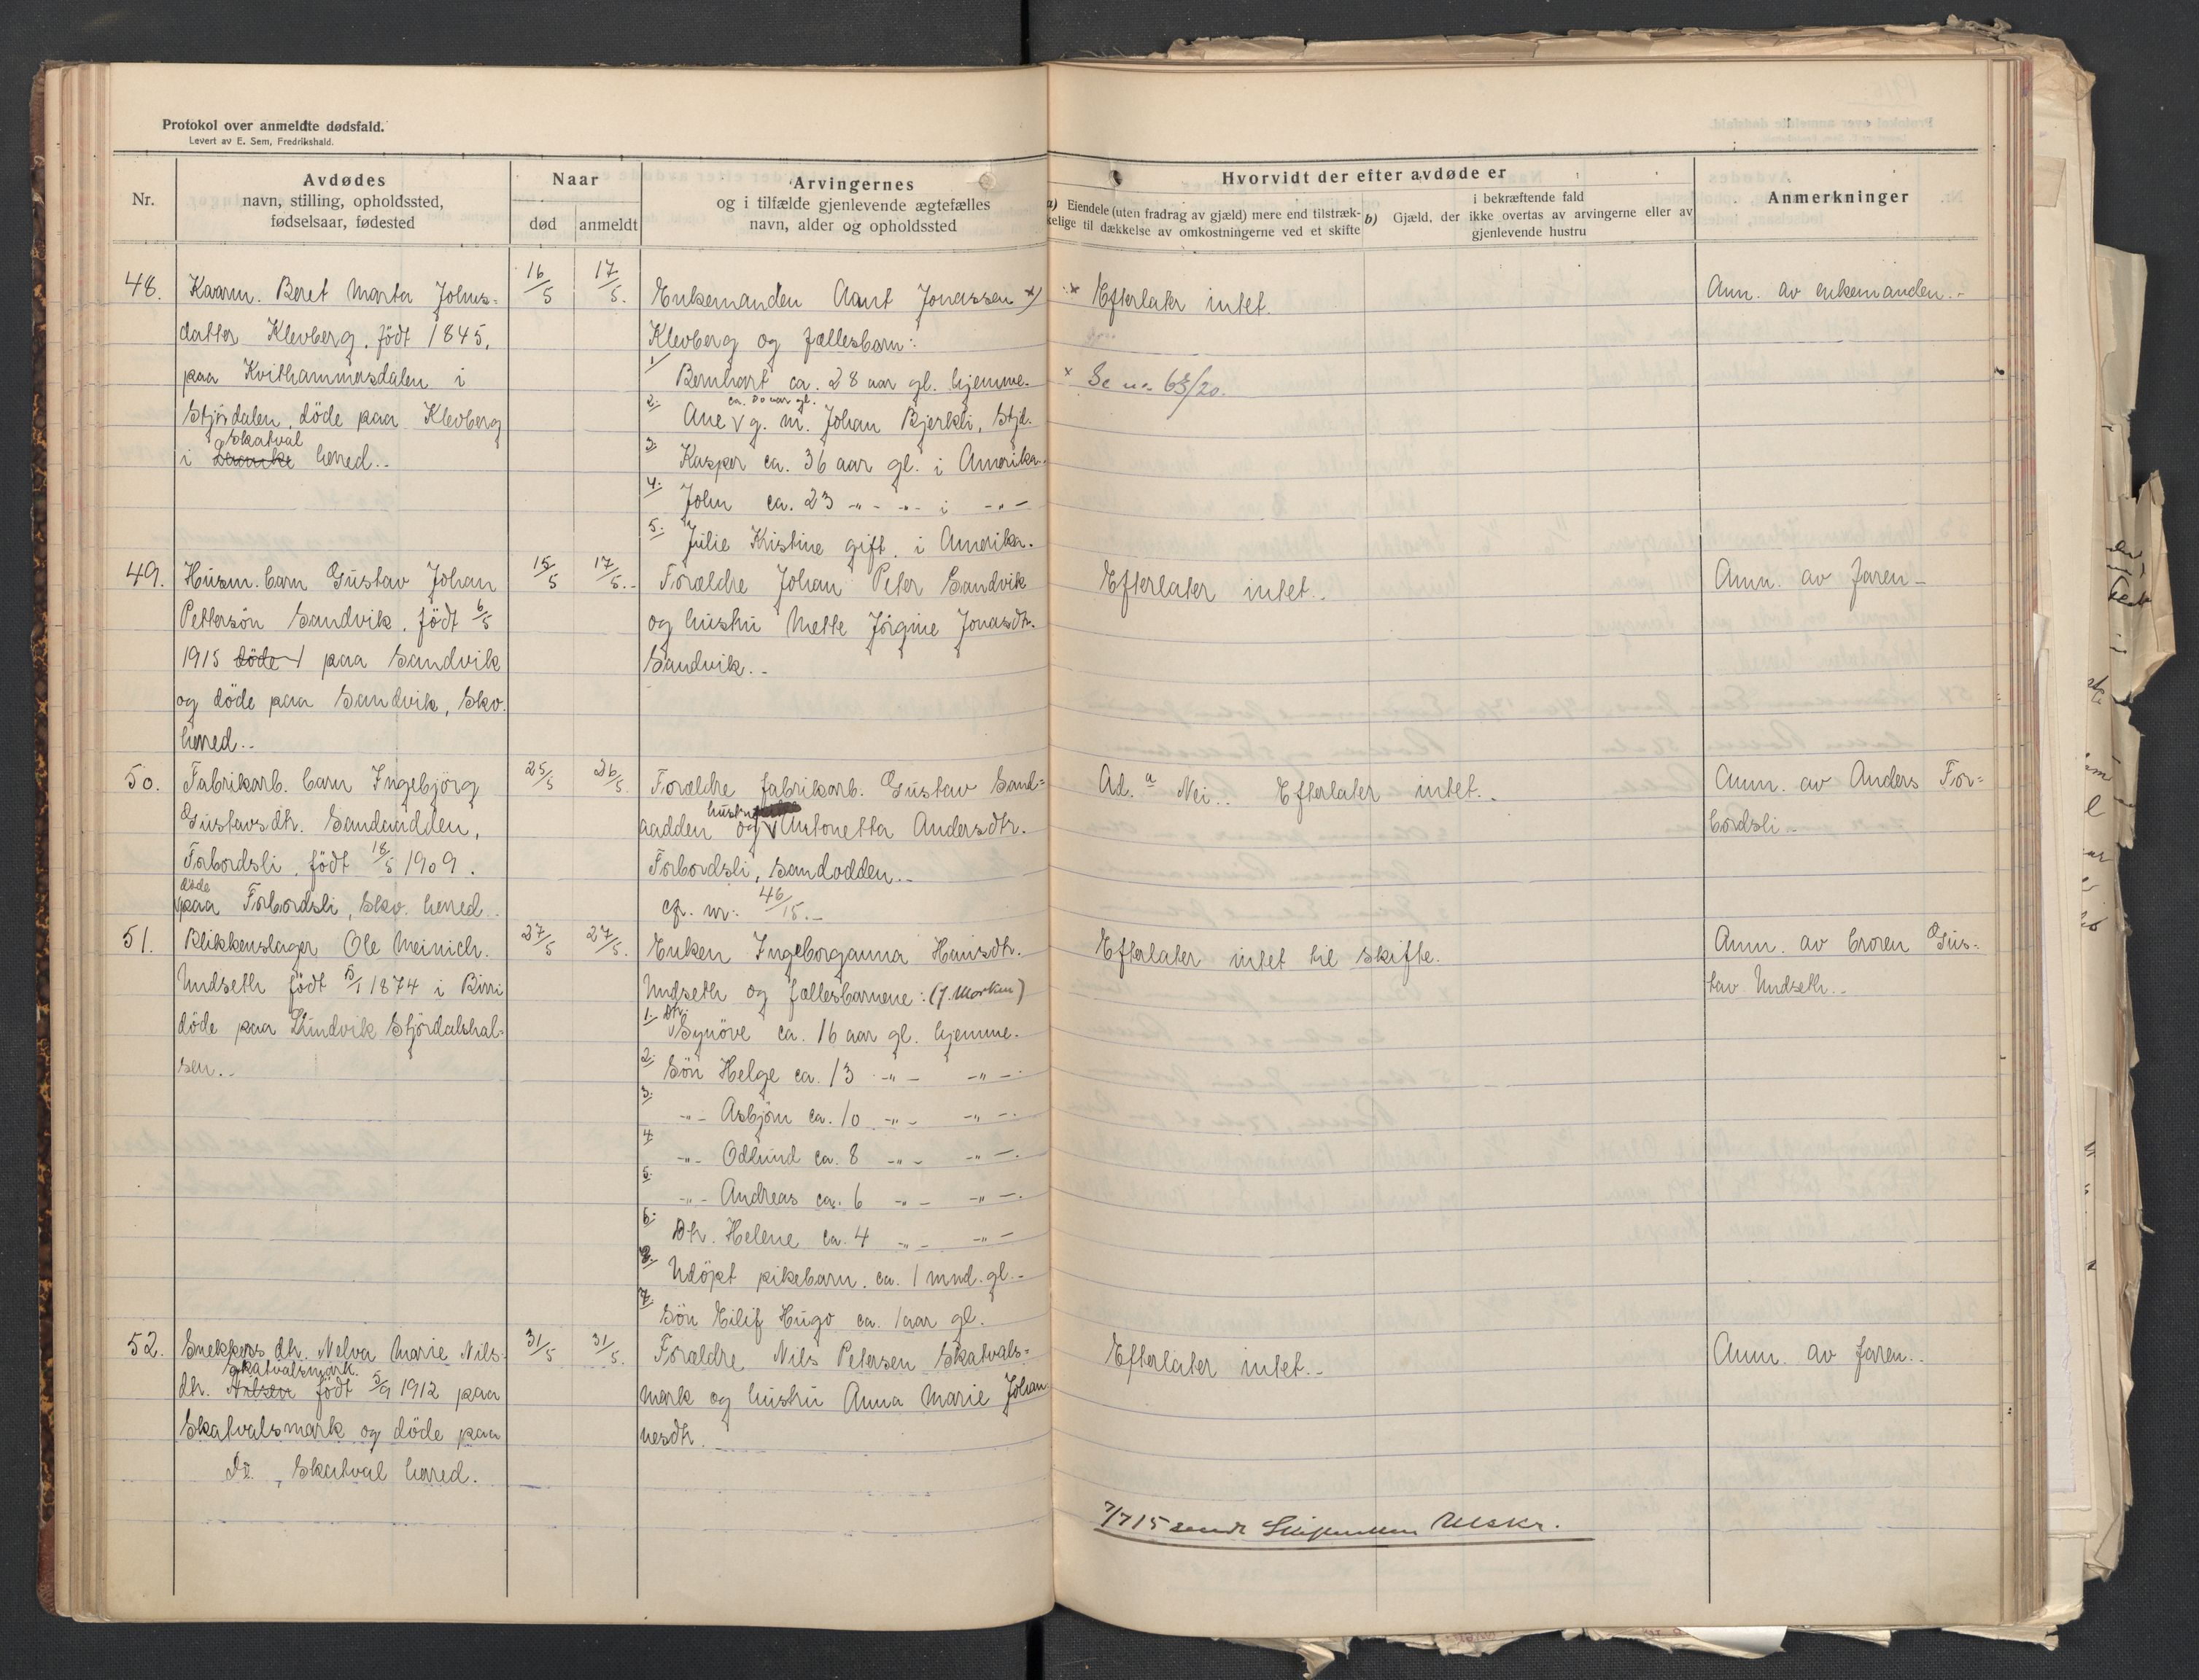 Protokol over anmeldte dødsfald.
Levert av E. Sem, Fredrikshald.
Nr.
Avdødes
navn, stilling, opholdssted,
fødselsaar, fødested
Naar
død
anmeldt
Arvingernes
og i tilfælde gjenlevende ægtefælles
navn, alder og opholdssted
Hvorvidt der efter avdøde er
a) Eiendele (uten fradrag av gjæld) mere end tilstræk-
kelige til dækkelse av omkostningerne ved et skifte
b) Gjæld, der
i bekræftende fald
ikke overtas av arvingerne eller av
gjenlevende hustru
Anmerkninger
48.
Kaarm. Beret Marta Johns-
datter Klevberg. födt 1845.
paa Kvithammersdalen i
Stjördalen, döde paa Klevberg
Skatval
i herred..
16/5
17/5.
Enkemanden Aant Jonassen x)
Klevberg og fællesbarn:
1/ Bernhart ca. 28 aar gl. hjemme.
ca. 20 aar gl.
2. Ane v g. m. Johan Bjerkli, Stjd.
3. Kasper ca. 36 aar gl. i Amerika.
4. John ca. 23 -"- -"- i -"-
5. Julie Kristine gift. i Amerika.
x Efterlater intet.
x Se nr. 63/20.
Anm. av enkemanden.-
49.
Husm. barn Gustav Johan
Petterson Sandvik. födt 6/5
1915 döde paa Sandvik
og döde paa Sandvik, Skv.
herred..
15/5
17/5.-
Forældre Johan Peter Sandvik
og hustru Mette Jörgine Jonasdtr.
Sandvik..
Efterlater intet..
Anm. av faren-
50.
Fabrikarb. barn Ingebjörg
Gustavsdtr. Sandaadden,
Forbordsli, födt 18/5 1909.
döde
paa Forbordsli, Skv. herred..
25/5
26/5.
Forældre fabrikarb. Gustav Sand=
hustru
aadden og v Antonetta Andersdtr.
Forbordsli, Sandodden..
cfr. nr: 46/15.-
Ad. a Nei.. Efterlater intet..
Anm. av Anders For=
bordsli..
51.
Blikkenslager Ole Meinich.
Undseth födt 5/1 1874 i Birri
döde paa Lundvik Stjördalshal-
sen..
27/5
27/5.
Enken Ingeborganna Hansdtr.
Undseth og fællesbarnene: (f. Morken)
1. Dtr. Synöve ca. 16 aar gl. hjemme.
2. Sön Helge ca. 13 -"- -"-.
3. -"- Asbjörn ca. 10 -"- -"-.
4. -"- Odlund ca. 8 -"- -"-.
5. -"- Andreas ca. 6 -"- -"-.
6. Dtr. Helene ca. 4 -"- -"-
8. Udöpt pikebarn. ca. 1 mnd. gl.-
7. Sön Eilif Hugo ca. 1 aar gl.
Efterlater intet til skifte.
Anm. av broren Gus=
tav Undseth..
52.
Snekkers dtr. Nelva Marie Nils-
Skatvalsmark.
dtr. födt 5/9 1912 paa
Skatvalsmark og döde paa
Do., Skatval herred.
31/5
31/5.
Forældre Nils Petersen Skatvals=
mark og hustru Anna Marie Johan
nesdtr.
Efterlater intet..
Anm. av faren..
7/7 15 sendt Utskr.